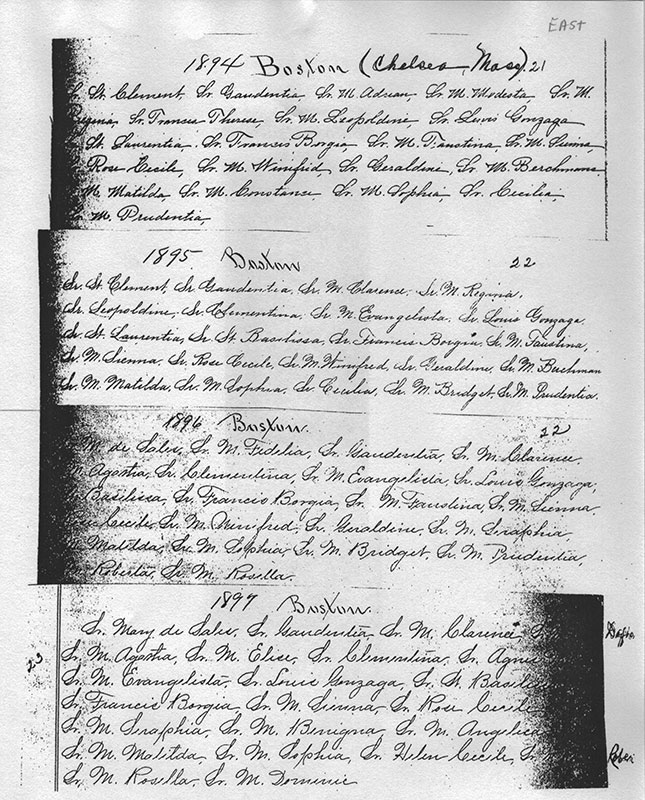 EAST
1894 Boston (Chelsea, Mass). 21
Sr. St. Clement, Sr. Gaudentia, Sr. M. Adrian, Sr. M. Modesta Sr. M.
Regina, Sr. Francis Therese, Sr. M. Leopoldine, Sr. Louis Gonzaga
St. Laurentia, Sr. Francis Borgia Sr. M. Faustina, Sr. M. Sienna
Rose Cecile, Sr. M. Winifrid, Sr. Geraldine, Sr. M. Berchmans
M. Matilda, Sr. M. Constance, Sr. M. Sophia, Sr. Cecilia,
M. Prudentia,
1895 Boston 22
Sr. St. Clement, Sr Gaudentia, Sr. M. Clarence, Sr. M. Regina,
Sr. Leopoldine, Sr. Clementina, Sr. M. Evangelista, Sr. Louis Gonzaga,
Sr. St. Laurentia, Sr. St. Basilissa, Sr. Francis Borgia, Sr. M. Faustina,
Sr. M. Sienna, Sr. Rose Cecile, Sr. M. Winifred, Sr. Geraldine, Sr. M. Buchman
Sr. M. Matilda, Sr. M. Sophia, Sr. Cecilia, Sr. M. Bridget, Sr. M. Prudentia.
1896 Boston. 22
M. de Sales, Sr. M. Fidelia, Sr. Gaudentia, Sr. M. Clarence,
M. Agostia, Sr. Clementina, Sr. M. Evangelista, Sr. Louis Gonzaga,
Basilissa, Sr. Francis Borgia, Sr. M. Faustina, Sr. M. Sienna
Rose Cecile, Sr. M. Winifred, Sr. Geraldine, Sr. M. Seraphia,
M. Matilda, Sr. M. Sophia, Sr. M. Bridget, Sr. M. Prudentia,
M. Roberta, Sr. M. Rosella.
1897 Boston.
Sr. Mary de Sales, Sr. Gaudentia, Sr. M. Clarence,
23 Sr. M. Agostia, Sr. M. Elise, Sr. Clementina, Sr. Agnes
Sr. M. Evangelista, Sr. Louis Gonzaga, Sr. St. Basilissa
Sr. Francis Borgia, Sr. M. Sienna, Sr. Rose Cecile
Sr. M. Seraphia, Sr. M. Benigna, Sr. M. Angelica
Sr. M. Matilda, Sr. M. Sophia, Sr. Helen Cecile, Sr
Sr. M. Rosella, Sr. M. Dominic